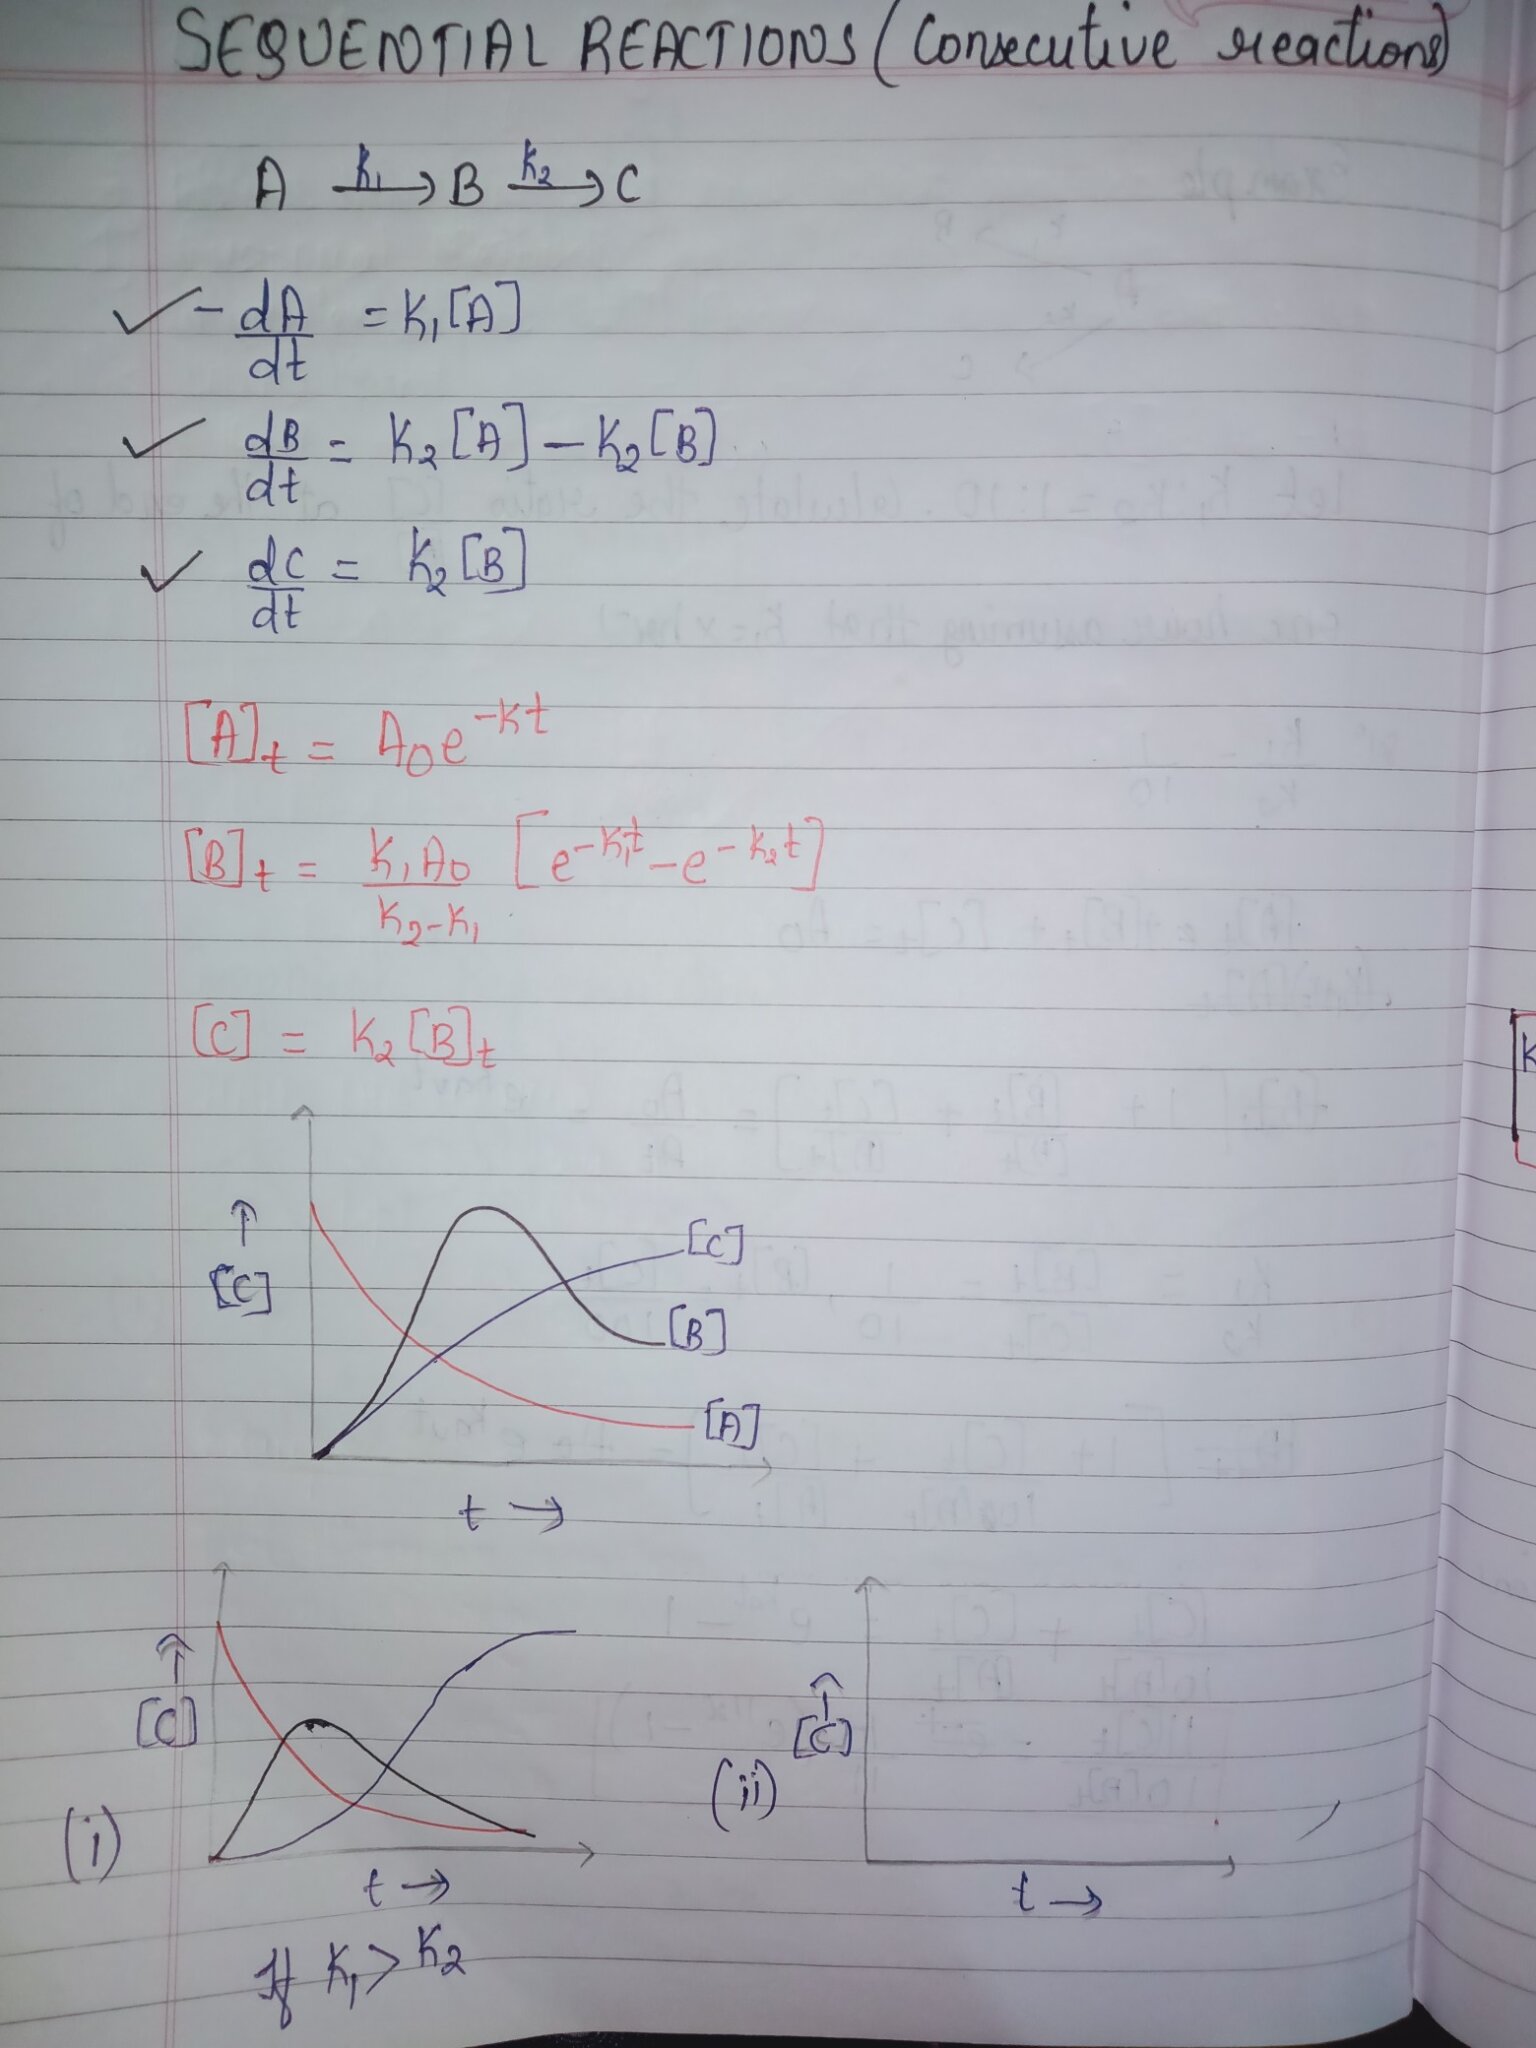 SEQUENTIAL REACTIONS (Consecutive reactions)
A —K₁→ B —K₂→ C
✓ - dA/dt = K₁[A]
✓ dB/dt = K₂[A] - K₂[B]
✓ dC/dt = K₂[B]
[A]t = A₀e^-Kt
[B]t = K₁A₀/K₂-K₁ [e^-K₁t - e^-K₂t]
[C] = K₂[B]t
↑
[C]
[C]
[B]
[A]
t →
↑
[C]
(i)
t →
If K₁ > K₂
↑
[C]
(ii)
t →
K